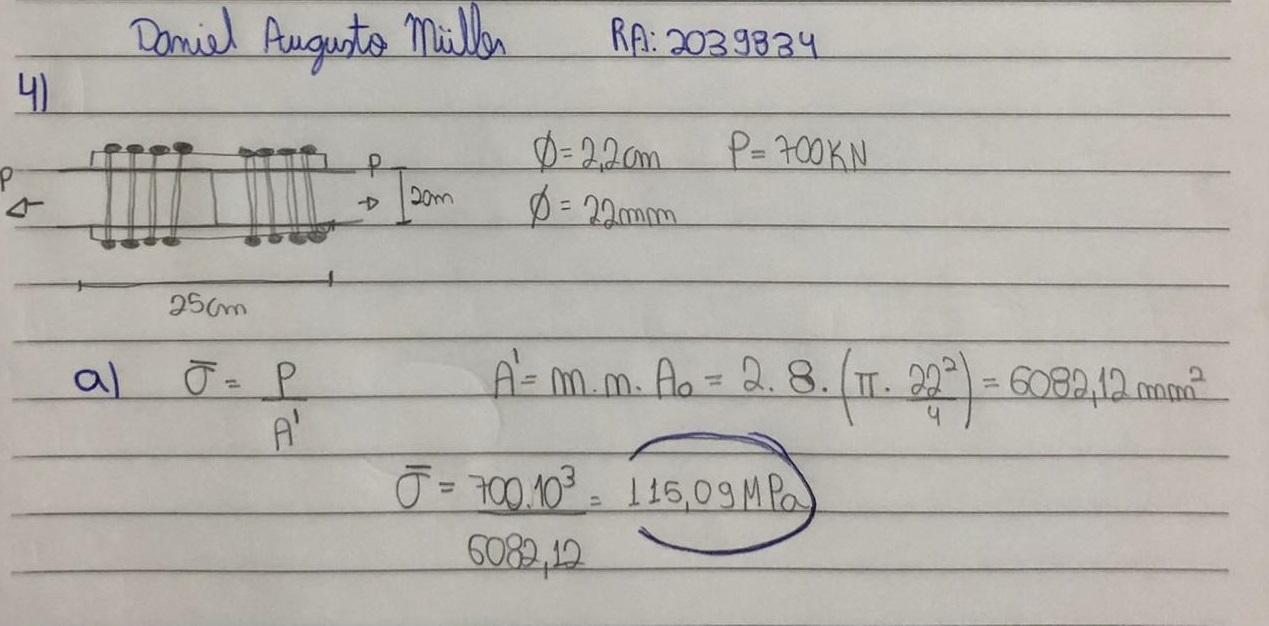 Daniel Augusto Müller RA: 2039834
4)
P P
2cm
Ø = 2,2cm P = 700KN
Ø = 22mm
25cm
a) σ̅ = P/A' A' = m.m.A₀ = 2.8.(π.22²/4) = 6082,12mm²
σ̅ = 700.10³/6082,12 = 115,09MPa